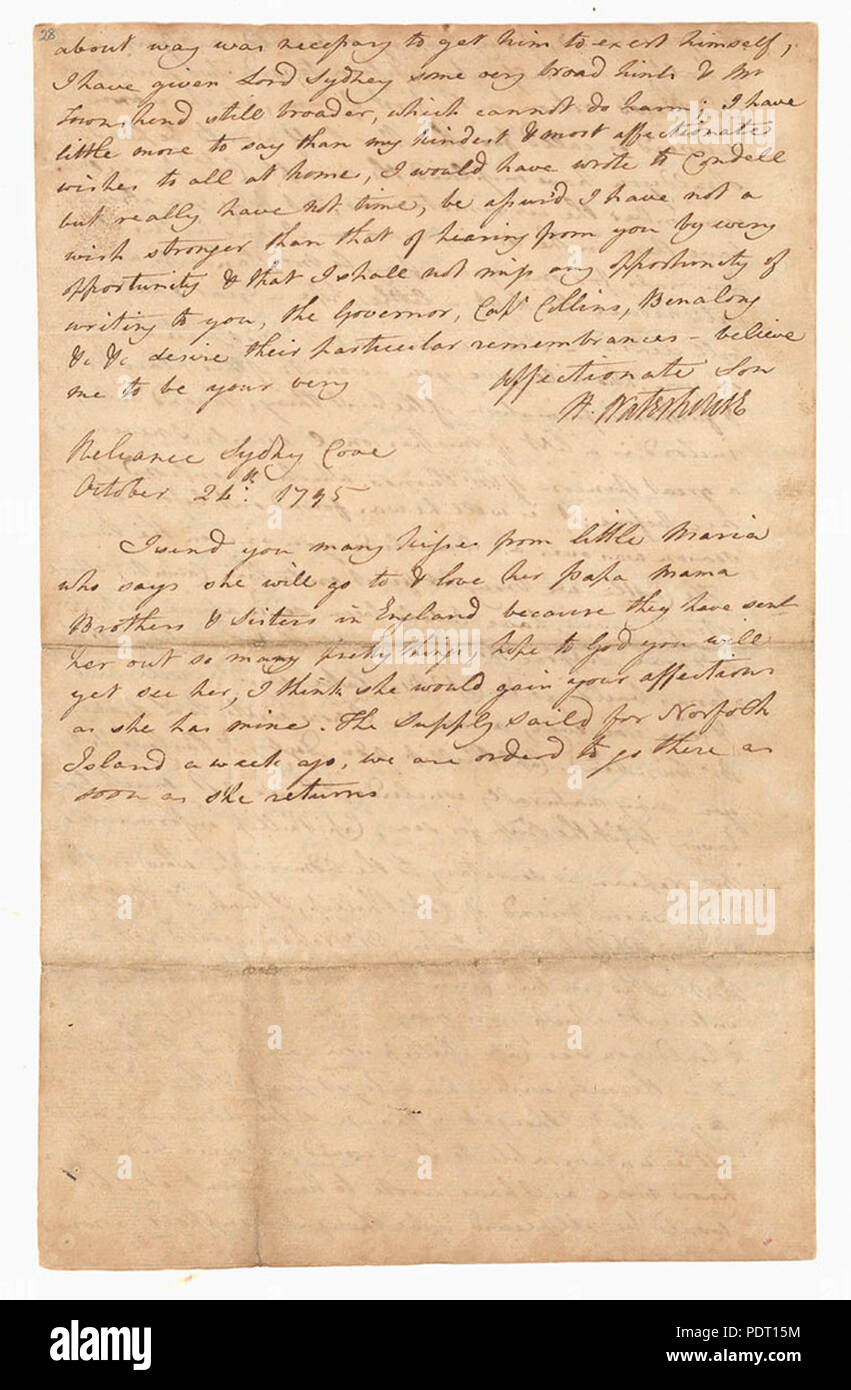 28
about way was necessary to get him to exert himself,
I have given Lord Sydney some very broad hints & Mr
Townshend still broader, which cannot do harm; I have
little more to say than my kindest & most affectionate
wishes to all at home, I would have wrote to Condell
but really have not time, be assur'd I have not a
wish stronger than that of hearing from you by every
opportunity & that I shall not miss any opportunity of
writing to you, the Governor, Capt Collins, Benalong
&c &c desire their particular remembrances - believe
me to be your very affectionate Son
H. Waterhouse
Reliance Sydney Cove
October 24th. 1795
I send you many kisses from little Maria
who says she will go to & love her papa Mama
Brothers & Sisters in England because they have sent
her out so many pretty things, hope to God you will
yet see her, I think she would gain your affections
as she has mine. The Supply saild for Norfolk
Island a week ago, we are orderd to go there as
soon as she returns
a alamy
alamy
Image ID: PDT15M
www.alamy.com